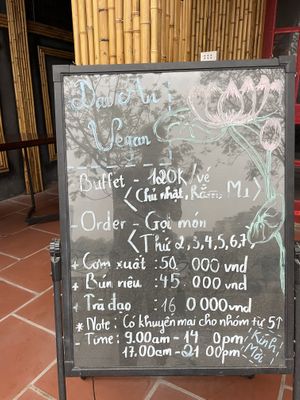 Vegan
Buffet - 120K/vé
<Chủ nhật, Rằm, M1>
- Order - Gọi món
<Thứ 2,3,4,5,6,7>
+ Cơm xuất: 50 000 vnd
+ Bún riêu: 45 000 vnd
+ Trà đạo: 16 0 000 vnd
* Note: Có khuyến mai cho nhóm từ 5↑
- Time: 9.00am - 14 0pm
17.00am - 21 00pm
Kính
Mời